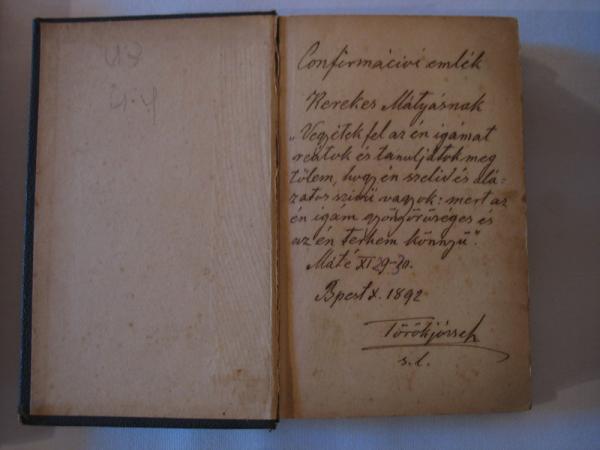 Confirmációi emlék
Kerekes Mátyásnak
„Vegyétek fel az én igámat
reátok és tanuljátok meg
tőlem, hogy én szelid és alá-
zatos szivü vagyok: mert az
én igám gyönyörűséges és
az én terhem könnyű".
Máté XI 29-30.
Bpest X. 1892
Török József
s. l.